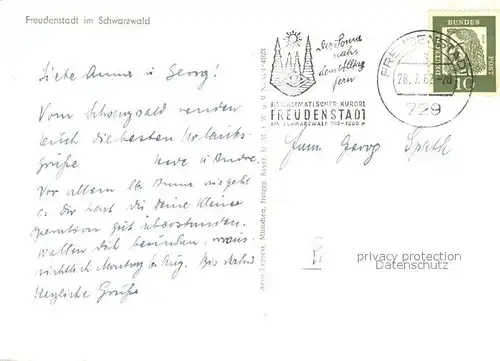 Freudenstadt im Schwarzwald
Liebe Anna u Georg!
Vom Schwarzwald senden
euch die besten Urlaubs-
grüße
Vor allem lb. Anna wie geht
es Dir hast du deine kleine
Operation gut überstanden.
Wollen dich besuchen, voraus-
sichtlich Montag 6. Aug. Bis dahin
herzliche Grüße
der Sonne
nah
dem Alltag
fern
HEILKLIMATISCHER KURORT
FREUDENSTADT
IM SCHWARZWALD
FREUDENSTADT
28.7.62-20
729
DEUTSCHE
BUNDES
10
Georg Späth
privacy protection
Datenschutz